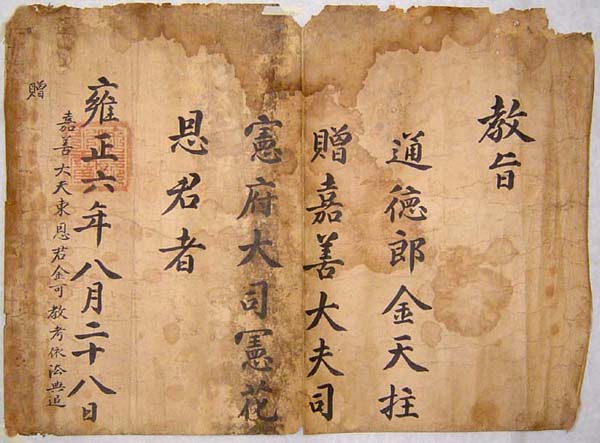 教旨
通德郎金天柱
贈嘉善大夫司
憲府大司憲花
恩君者
雍正六年八月二十八日
嘉善大夫東恩君金可教考依法典追
贈